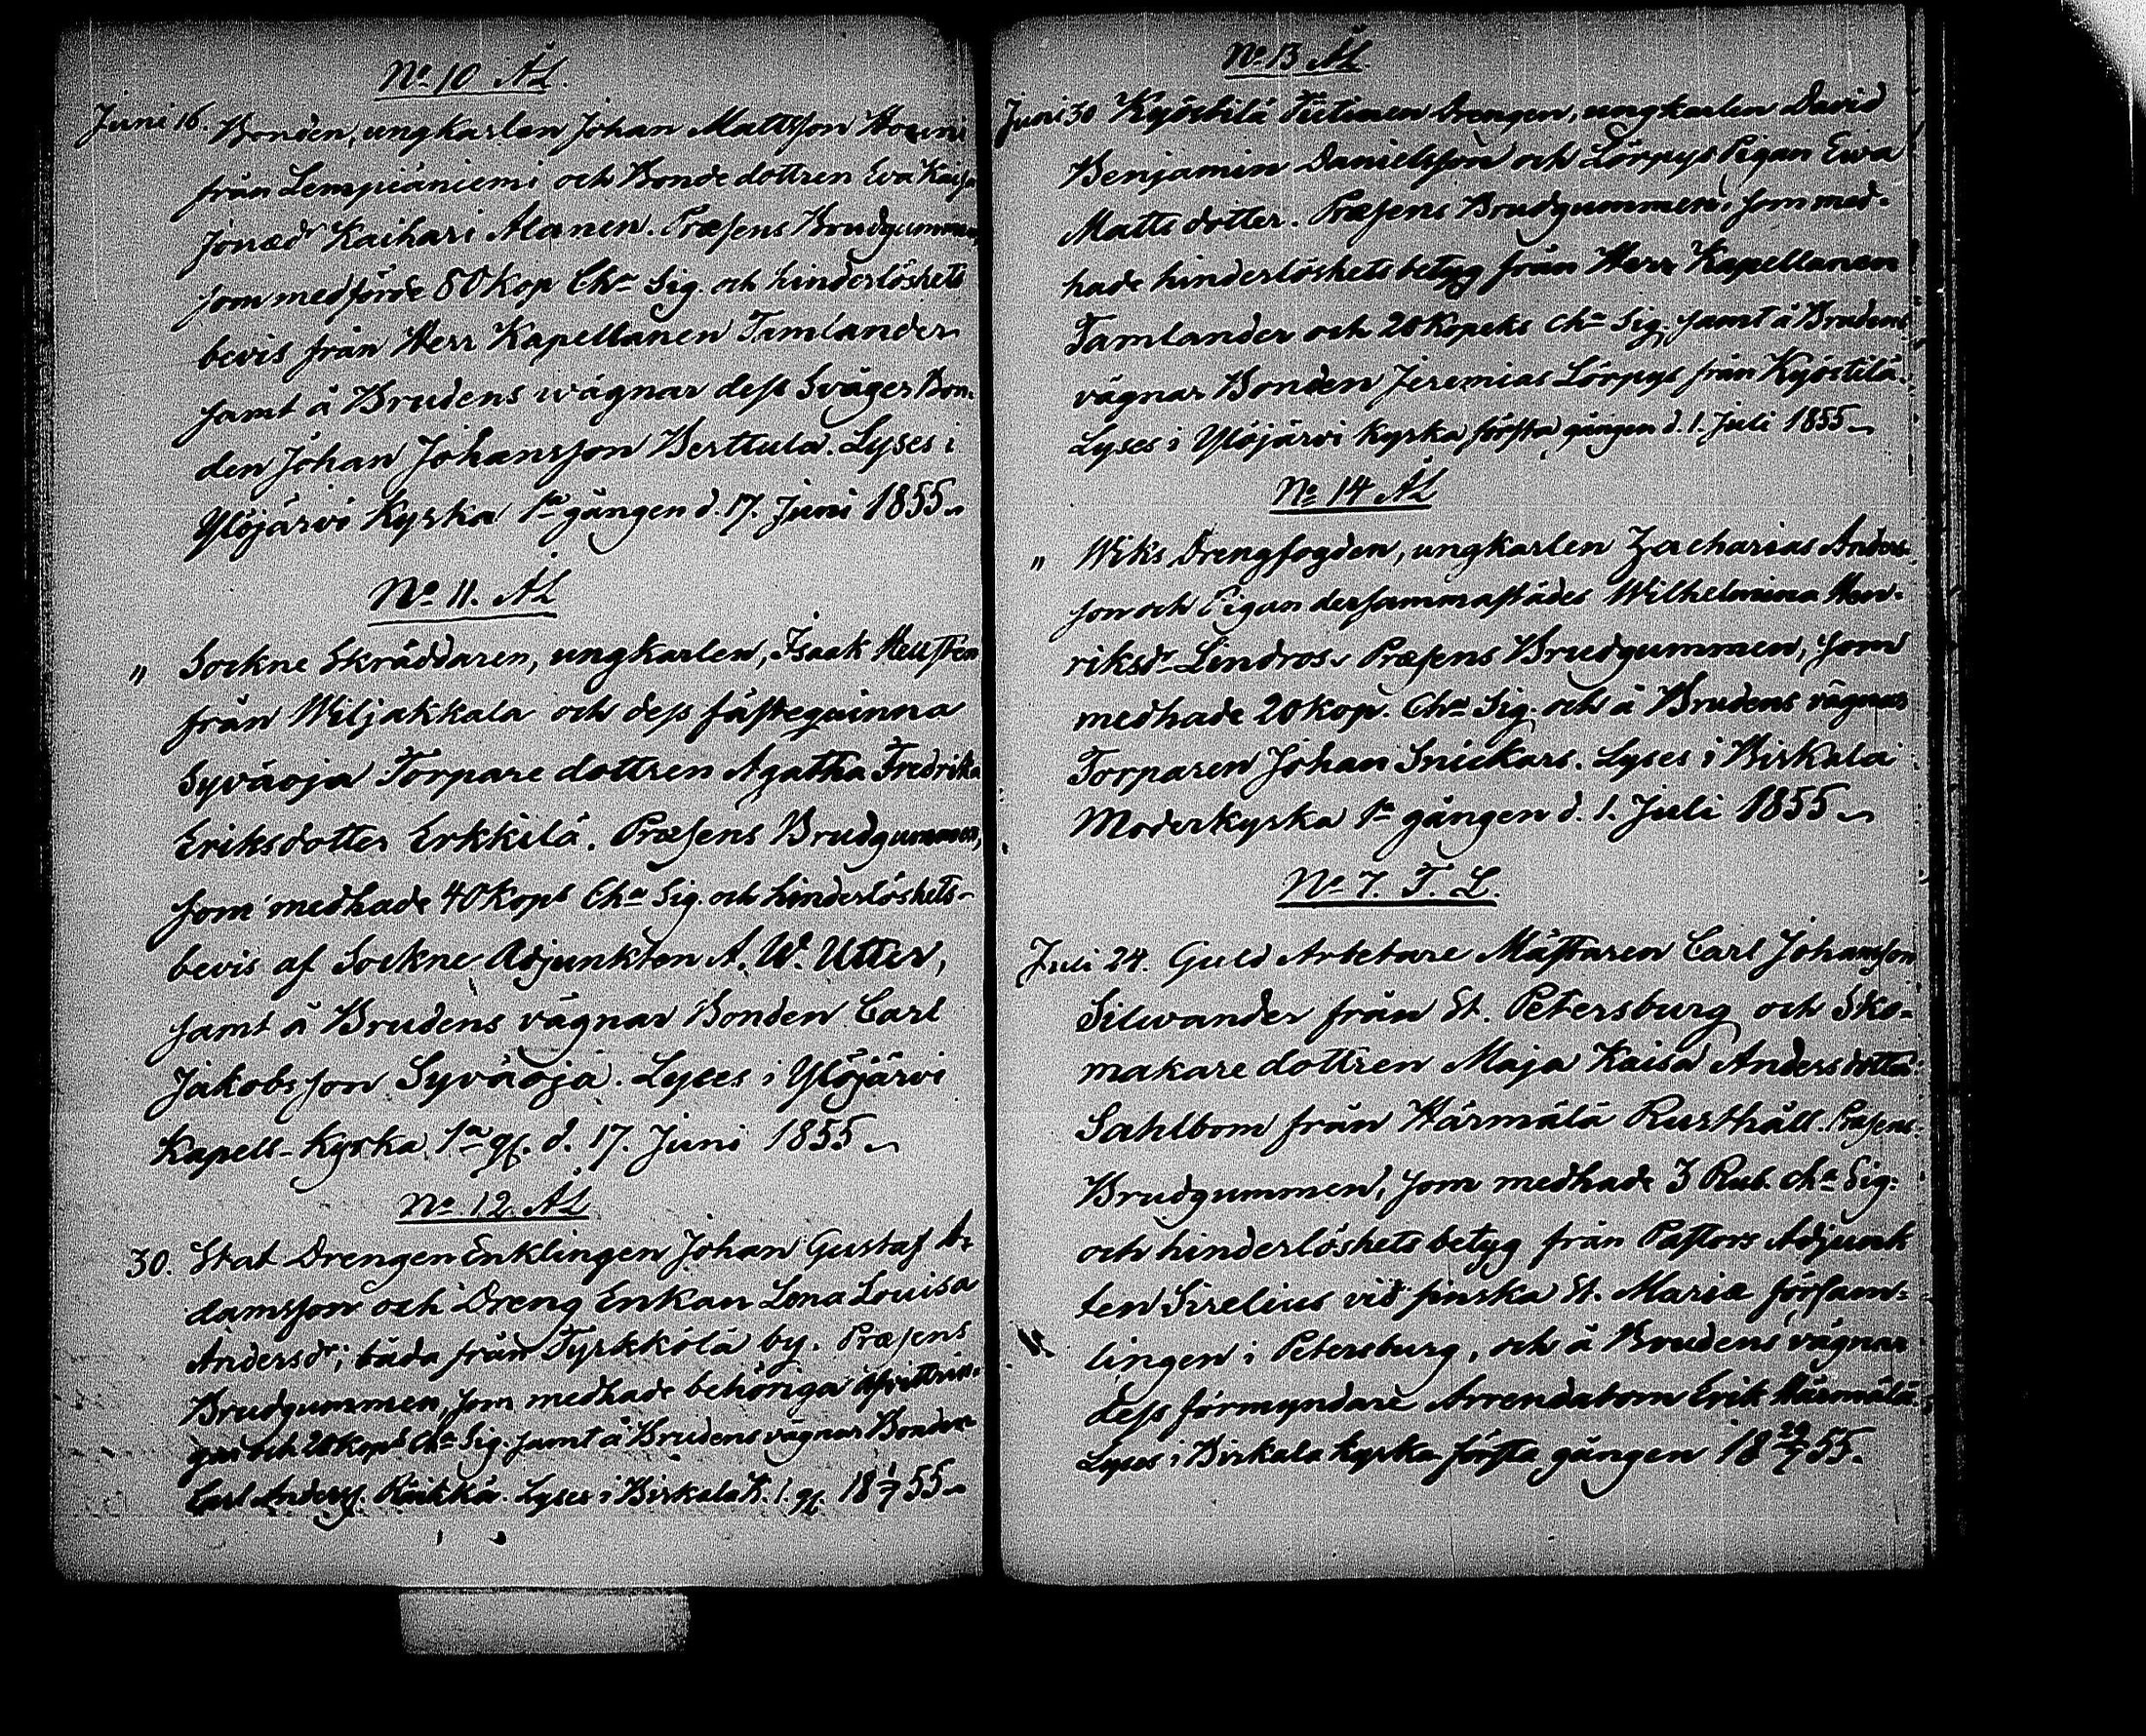 No 10 ÅL.
Juni 16. Bonden, ungkarlen Johan Mattsson
från Lempiäniemi och Bondedottren Eva Kaisa
Jonæd Kaihari Alanen. Præsens Brudgummen,
som medförde 80 Kop Cha Sig. och hinderlöshets
bevis från Herr Kapellanen Tamlander
samt å Brudens wägnar dess Svåger Bon-
den Johan Johansson Berttula. Lyses i
Ylöjärvi Kyrka 1a gången d. 17. Juni 1855.
No 11. ÅL
" Sockne Skräddaren, ungkarlen, Isaak Hellsten
från Wiljakkala och dess fästeqvinna
Syväoja Torpare dottren Agatha Fredrika
Eriksdotter Erkkilä. Præsens Brudgummen,
som medhade 40 Kops Cha Sig. och hinderlöshets-
bevis af Sockne Adjunkten A. W. Utter,
samt å Brudens vägnar Bonden Carl
Jakobsson Syväoja. Lyses i Ylöjärvi
Kapell-Kyrka 1a gg. d. 17. Juni 1855
No 12 ÅL
30. Stat Drengen Enklingen Johan Gustaf A-
damsson och Dreng Enkan Lena Lovisa
Andersdr; båda från Tyrkkölä by. Præsens
Brudgummen, som medhade behöriga afvittrin-
gar och 20 Kops Cha Sig. samt å Brudens vägnar Bonden
Carl Anderss. Räikkä. Lyses i Birkala K. 1. gg. 18 1/7 55
No 13 ÅL
Juni 30 Kyöstilä Tietinen Drengen, ungkarlen David
Benjamin Danielsson och Lörpys Pigan Ewa
Matts dotter. Præsens Brudgummen, som med-
hade hinderlöshets betyg från Herr Kapellanen
Tamlander och 20 Kopeks cha Sig. samt å Brudens
vägnar Bonden Jeremias Lörpys från Kyöstilä.
Lyses i Ylöjärvi Kyrka första gången d. 1. Juli 1855
No 14 ÅL
" Wiks Drengfogden, ungkarlen Zacharias Anders-
son och Pigan dersammastädes Wilhelmina Hen-
riksdr Lindros. Præsens Brudgummen, som
medhade 20 Kop. Cha Sig. och å Brudens vägnar
Torparen Johan Snickars. Lyses i Birkala
Moderkyrka 1a gången d. 1. Juli 1855
No 7. T. L.
Juli 24. Guld Arbetare Mästaren Carl Johansson
Silwander från St. Petersburg och Sko-
makare dottren Maja Kaisa Andersdotter
Sahlbom från Härmälä Rusthåll. Præsens
Brudgummen, som medhade 3 Rub. cha Sig:
och hinderlöshets betyg från Pastors Adjunk
ten Sirelius vid finska St. Mariæ försam-
lingen i Petersburg, och å Brudens vägnar
dess förmyndare Arrendatorn Erik Härmälä.
Lyses i Birkala kyrka första gången 18 29/7 55.